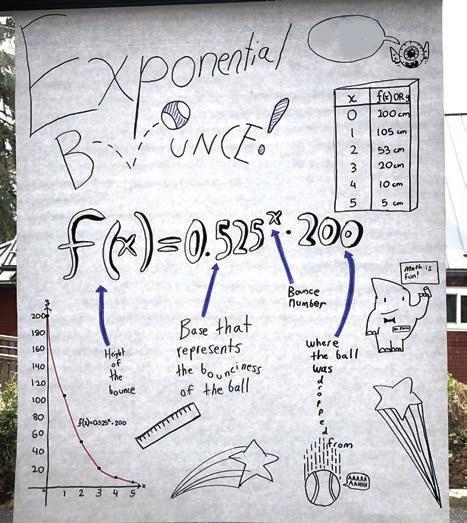 Exponential
BOUNCE!
x f(x) OR y
0 200 cm
1 105 cm
2 53 cm
3 20 cm
4 10 cm
5 5 cm
f(x)=0.525^x·200
Height
of
the
bounce
Base that
represents
the bounciness
of the ball
Bounce
number
where
the ball
was
dropped
from
Math is
fun!
200
190
160
140
120
100
80
60
40
20
0 1 2 3 4 5 x
f(x)=0.525^x·200
AAAAA
AAAAH